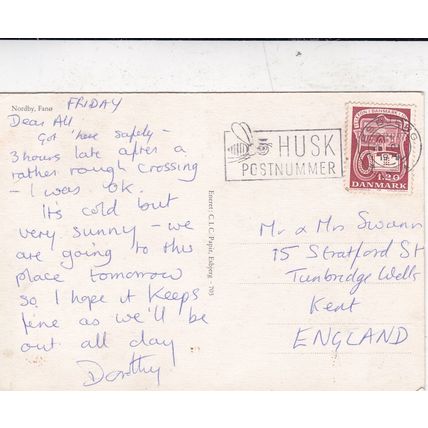 Nordby, Fanø
FRIDAY
Dear All
Got 'here safely -
3 hours late after a
rather rough crossing
- I was OK.
It's cold but
very sunny - we
are going to this
place tomorrow
so I hope it keeps
fine as we'll be
out all day
Dorothy
Eneret: C.I.C. Papir, Esbjerg - 705
HUSK
POSTNUMMER
1.20
DANMARK
Mr & Mrs Swann
15 Stratford St
Tunbridge Wells
Kent
ENGLAND